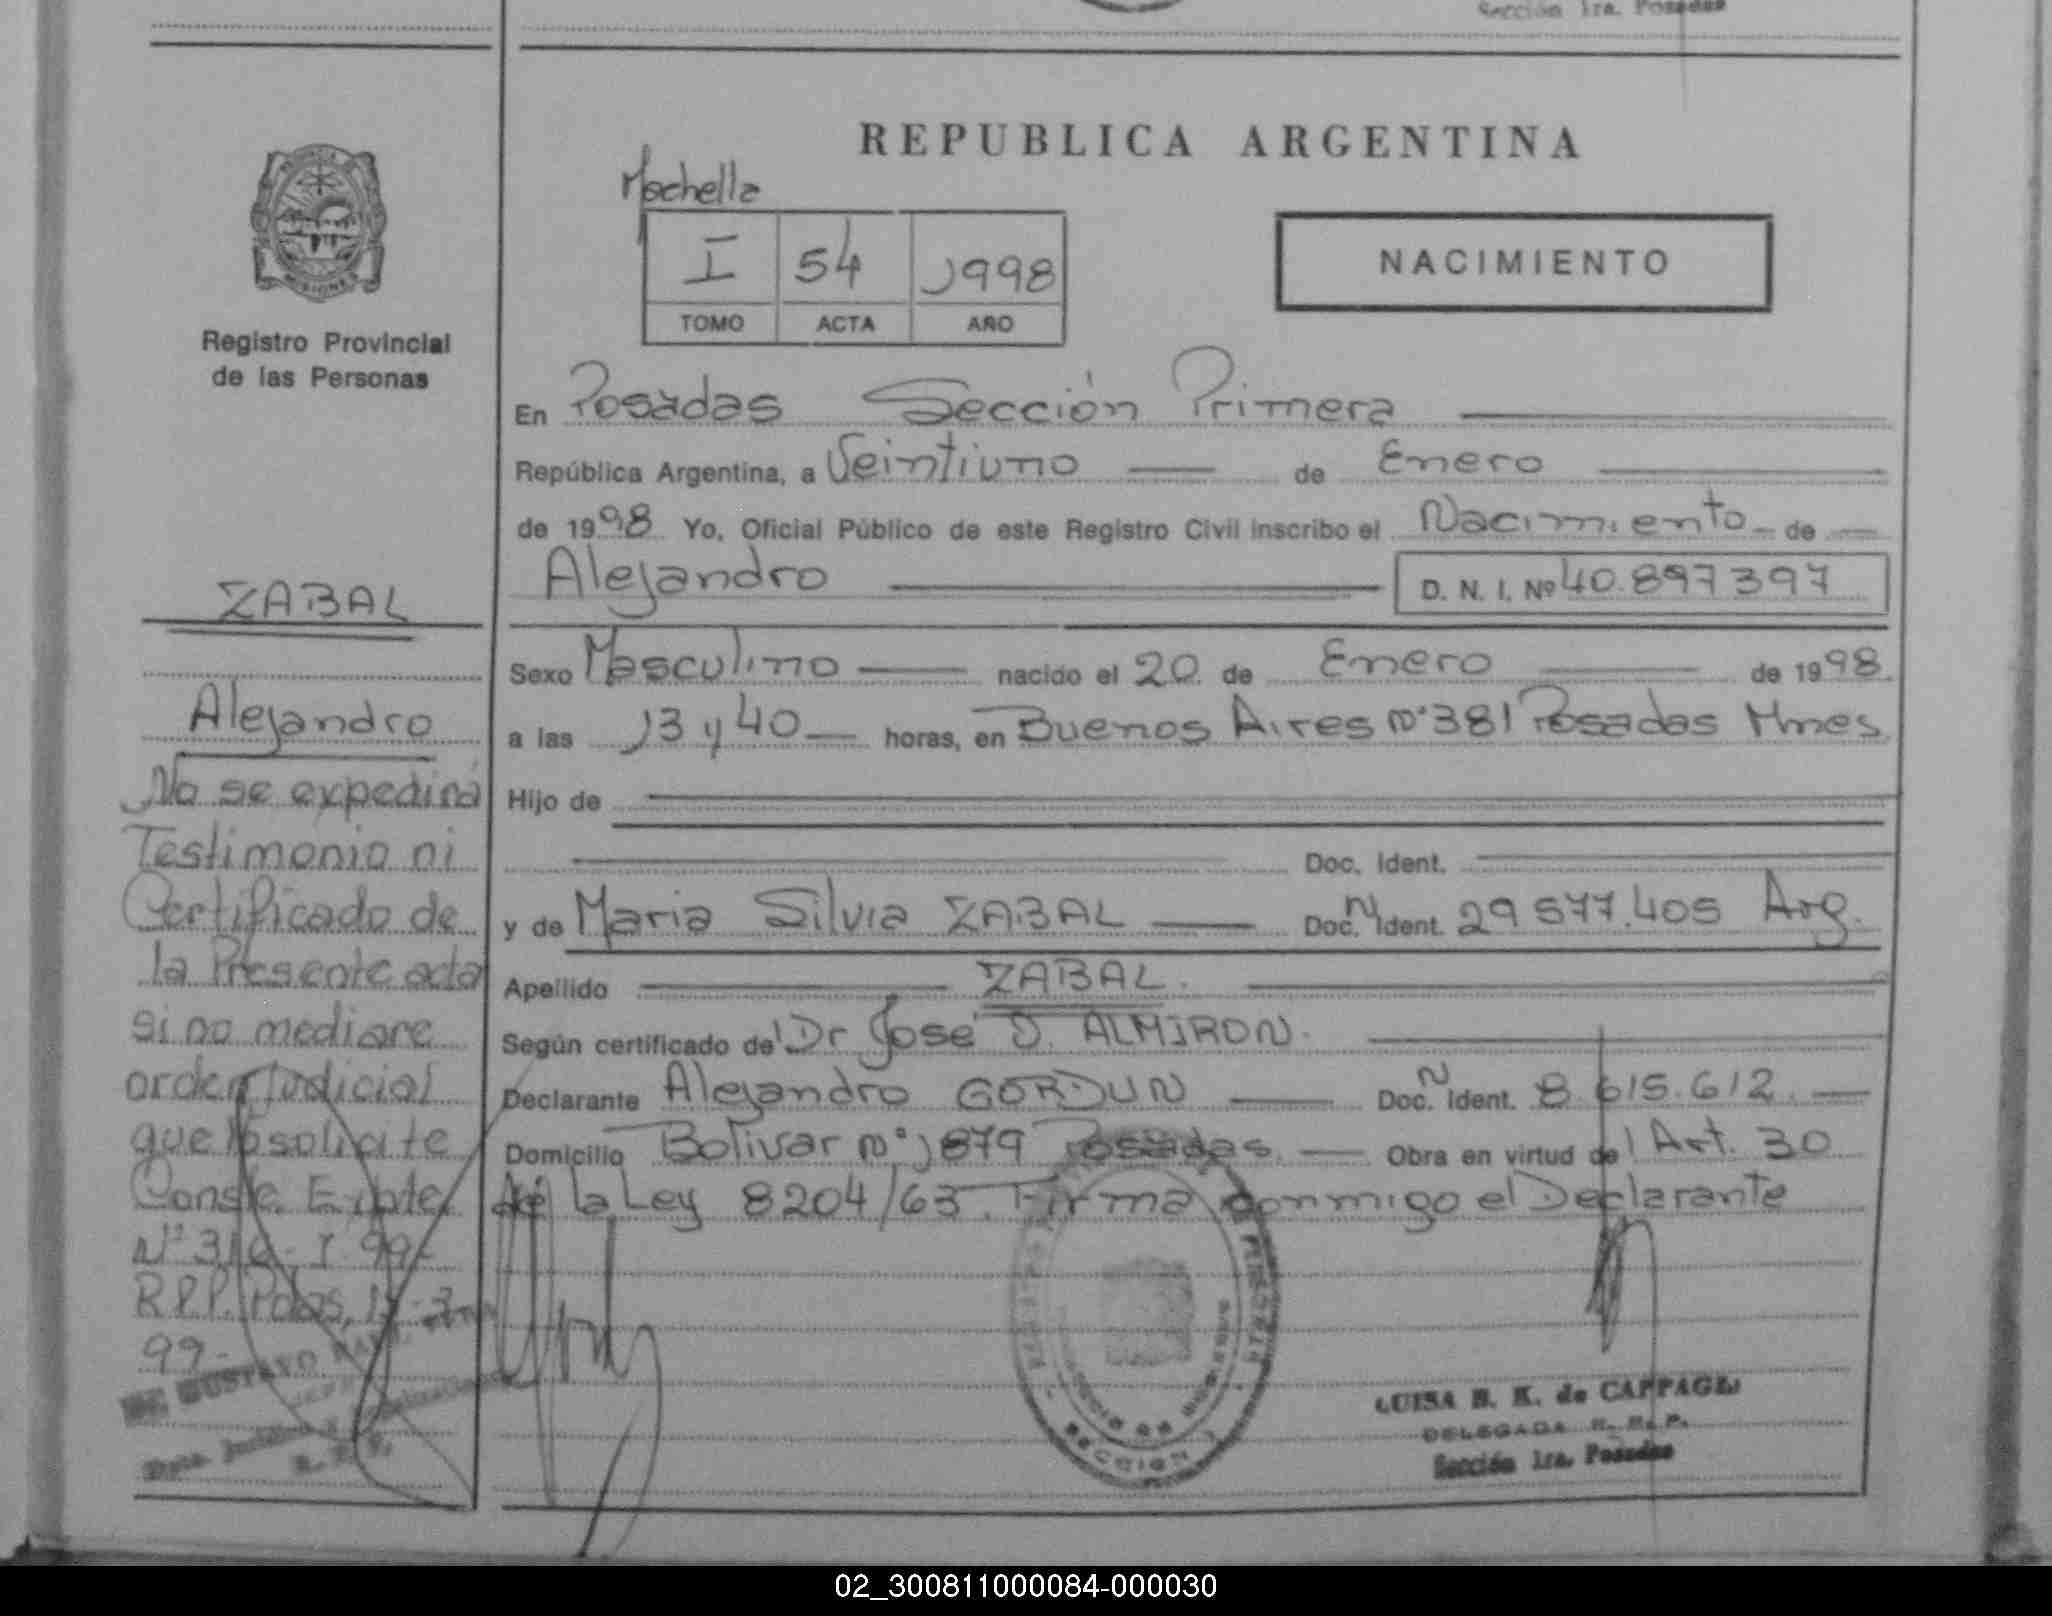 Sección 1ra. Posadas
REPUBLICA ARGENTINA
Mochella
I 54 1998
TOMO ACTA AÑO
NACIMIENTO
MISIONES
Registro Provincial
de las Personas
En Posadas Sección Primera
República Argentina, a Veintiuno de Enero
de 1998 Yo, Oficial Público de este Registro Civil inscribo el Nacimiento de
Alejandro D. N. I. Nº 40.897397
Sexo Masculino nacido el 20 de Enero de 1998.
a las 13 y 40 horas, en Buenos Aires Nº 381 Posadas Mnes
Hijo de
y Doc. Ident.
y de Maria Silvia ZABAL Doc. N Ident. 29577.405 Arg.
Apellido ZABAL.
Según certificado del Dr José D. ALMIRON.
Declarante Alejandro GORDUN Doc. N Ident. 8 615.612.
Domicilio Bolivar Nº 1879 Posadas. Obra en virtud del Art. 30
de la Ley 8204/63. Firma conmigo el Declarante
ZABAL
Alejandro
No se expedirá
Testimonio ni
Certificado de
la Presente acta
si no mediare
orden Judicial
que lo solicite
Conste. Expte.
R.P.P. Pdas,
99-
SECCION 1
LUISA B. K. de CAPPAGLI
DELEGADA R. P. P.
Sección 1ra. Posadas
02_300811000084-000030